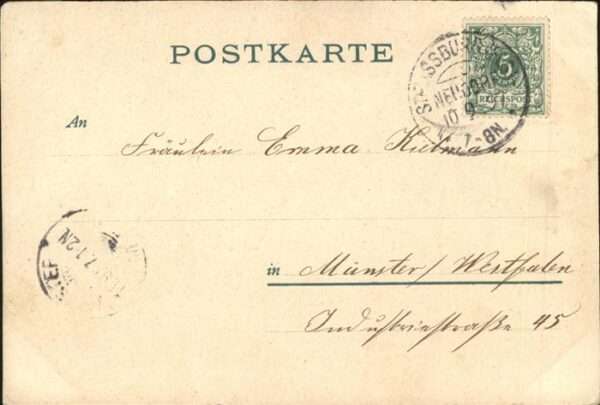 POSTKARTE
STRASSBURG
NEUDORF
10 9
7-8N.
5
REICHSPOST
An
Fräulein Emma Kielmann
7.1-2N
in Münster/Westfalen
Industriestraße 45